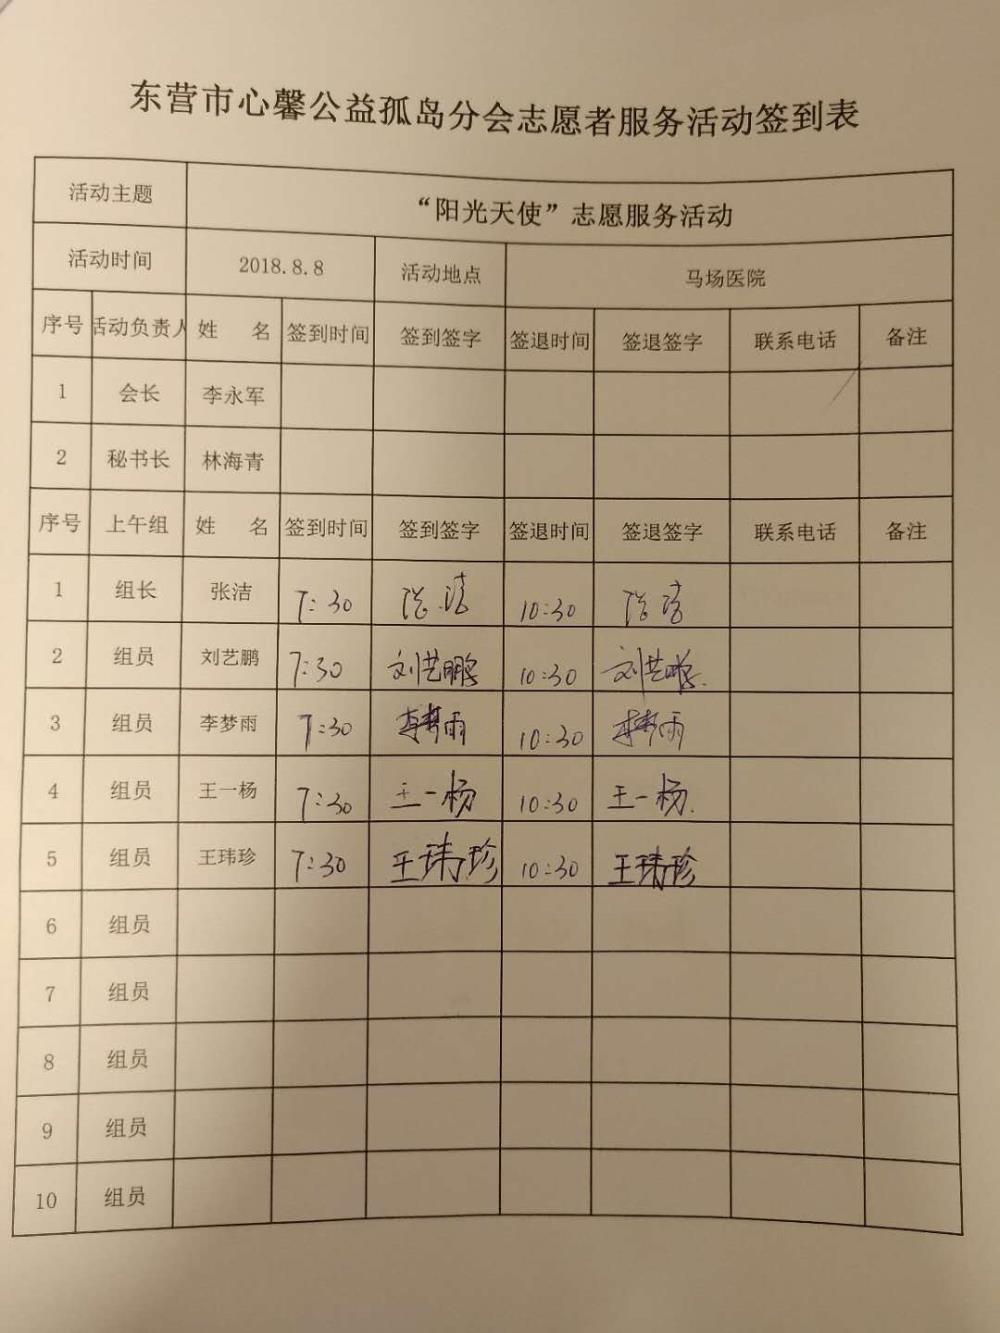 东营市心馨公益孤岛分会志愿者服务活动签到表
活动主题 “阳光天使”志愿服务活动
活动时间 2018.8.8 活动地点 马场医院
序号 活动负责人 姓 名 签到时间 签到签字 签退时间 签退签字 联系电话 备注
1 会长 李永军
2 秘书长 林海青
序号 上午组 姓 名 签到时间 签到签字 签退时间 签退签字 联系电话 备注
1 组长 张洁 7:30 张洁 10:30 张洁
2 组员 刘艺鹏 7:30 刘艺鹏 10:30 刘艺鹏.
3 组员 李梦雨 7:30 李梦雨 10:30 李梦雨
4 组员 王一杨 7:30 王一杨 10:30 王一杨.
5 组员 王玮珍 7:30 王玮珍 10:30 王玮珍
6 组员
7 组员
8 组员
9 组员
10 组员